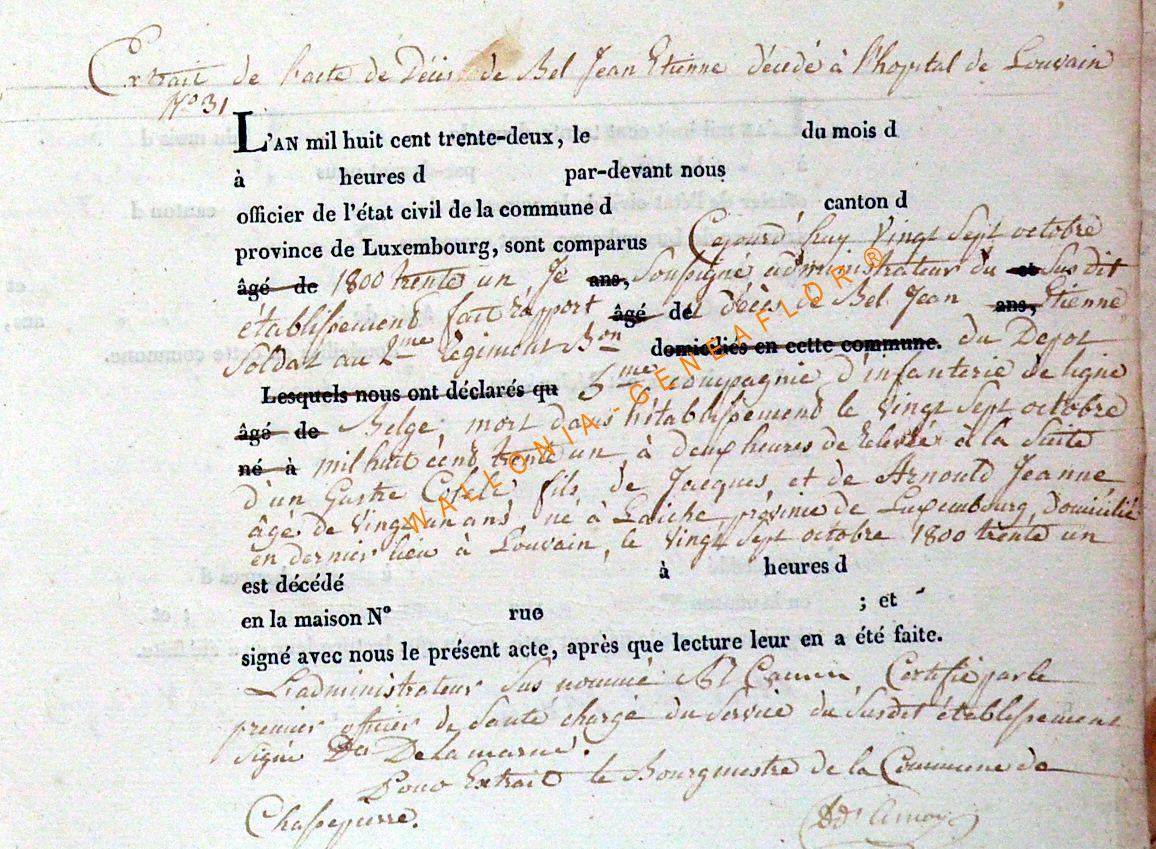 Extrait de l'acte de Décès de Bel Jean Etienne décédé à l'hopital de Louvain
N° 31
L'AN mil huit cent trente-deux, le du mois d
à heures d par-devant nous
officier de l'état civil de la commune d canton d
province de Luxembourg, sont comparus Cejourd'huy vingt Sept octobre
âgé de 1800 trente un Je ans, Soussigné administrateur du et Sus dit
établissement fait rapport âgé de décès de Bel Jean ans, Etienne,
Soldat au 2me Régiment Bon domiciliés en cette commune. du Depot
Lesquels nous ont déclarés qu 5me compagnie d'infanterie de ligne
âgé de Belge mort dans l'établissement le vingt Sept octobre
né à mil huit cent trente un à deux heures de à la Suite
d'un Gastre fils de Jacques et de Arnould Jeanne
âgé de vingt un ans, né à Laiche province de Luxembourg, domicilié
en dernier lieu à Louvain, le vingt Sept octobre 1800 trente un
est décédé à heures d
en la maison N° rue ; et
signé avec nous le présent acte, après que lecture leur en a été faite.
L'administrateur Sus nommé Certifié par le
premier officier de Santé chargé du Service du Susdit établissement
Signé Delamarne.
Pour Extrait le Bourgmestre de la Commune de
Chassepierre.
WALLONIA-GENEAFLOR®